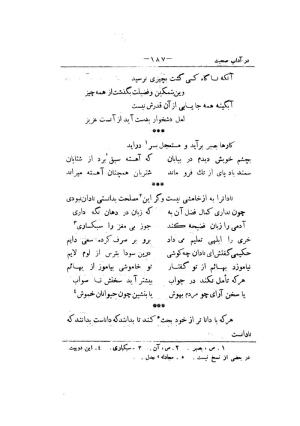 در آداب صحبت
— ۱۸۷ —
آنکه ناگاه کسی گشت بچیزی نرسید
وین بتمکین و فضیلت بگذشت از همه چیز
آبگینه همه جا یابی از آن قدرش نیست
لعل دشخوار بدست آید از آنست عزیز
***
کارها بصبر برآید و مستعجل بسر درآید
بچشم خویش دیدم در بیابان که آهسته سبق برد از شتابان
سمند بادپای از تک فرو ماند شتربان همچنان آهسته میراند
***
نادانرا به از خاموشی نیست وگر این مصلحت بدانستی نادان نبودی
چون نداری کمال فضل آن به که زبان در دهان نگه داری
آدمی را زبان فضیحه کند جوز بی مغز را سبکساری۳
خری را ابلهی تعلیم می داد برو بر صرف کرده سعی دایم
حکیمی گفتش ای نادان چه کوشی درین سودا بترس از لوم لایم
نیاموزد بهایم از تو گفتار تو خاموشی بیاموز از بهائم
هر که تأمل نکند در جواب بیشتر آید سخنش ناصواب
یا سخن آرای چو مردم بهوش یا بنشین چون حیوانان خموش۴
***
هر که با داناتر از خود بحث۵ کند تا بدانند که داناست بدانند که
نادانست
۱ . ص ، بصبر . ۲ . ص ، آن . ۳ . سبکباری . ۴ . این دوبیت
در بعضی از نسخ نیست . ۵ . مجادله ، جدل .